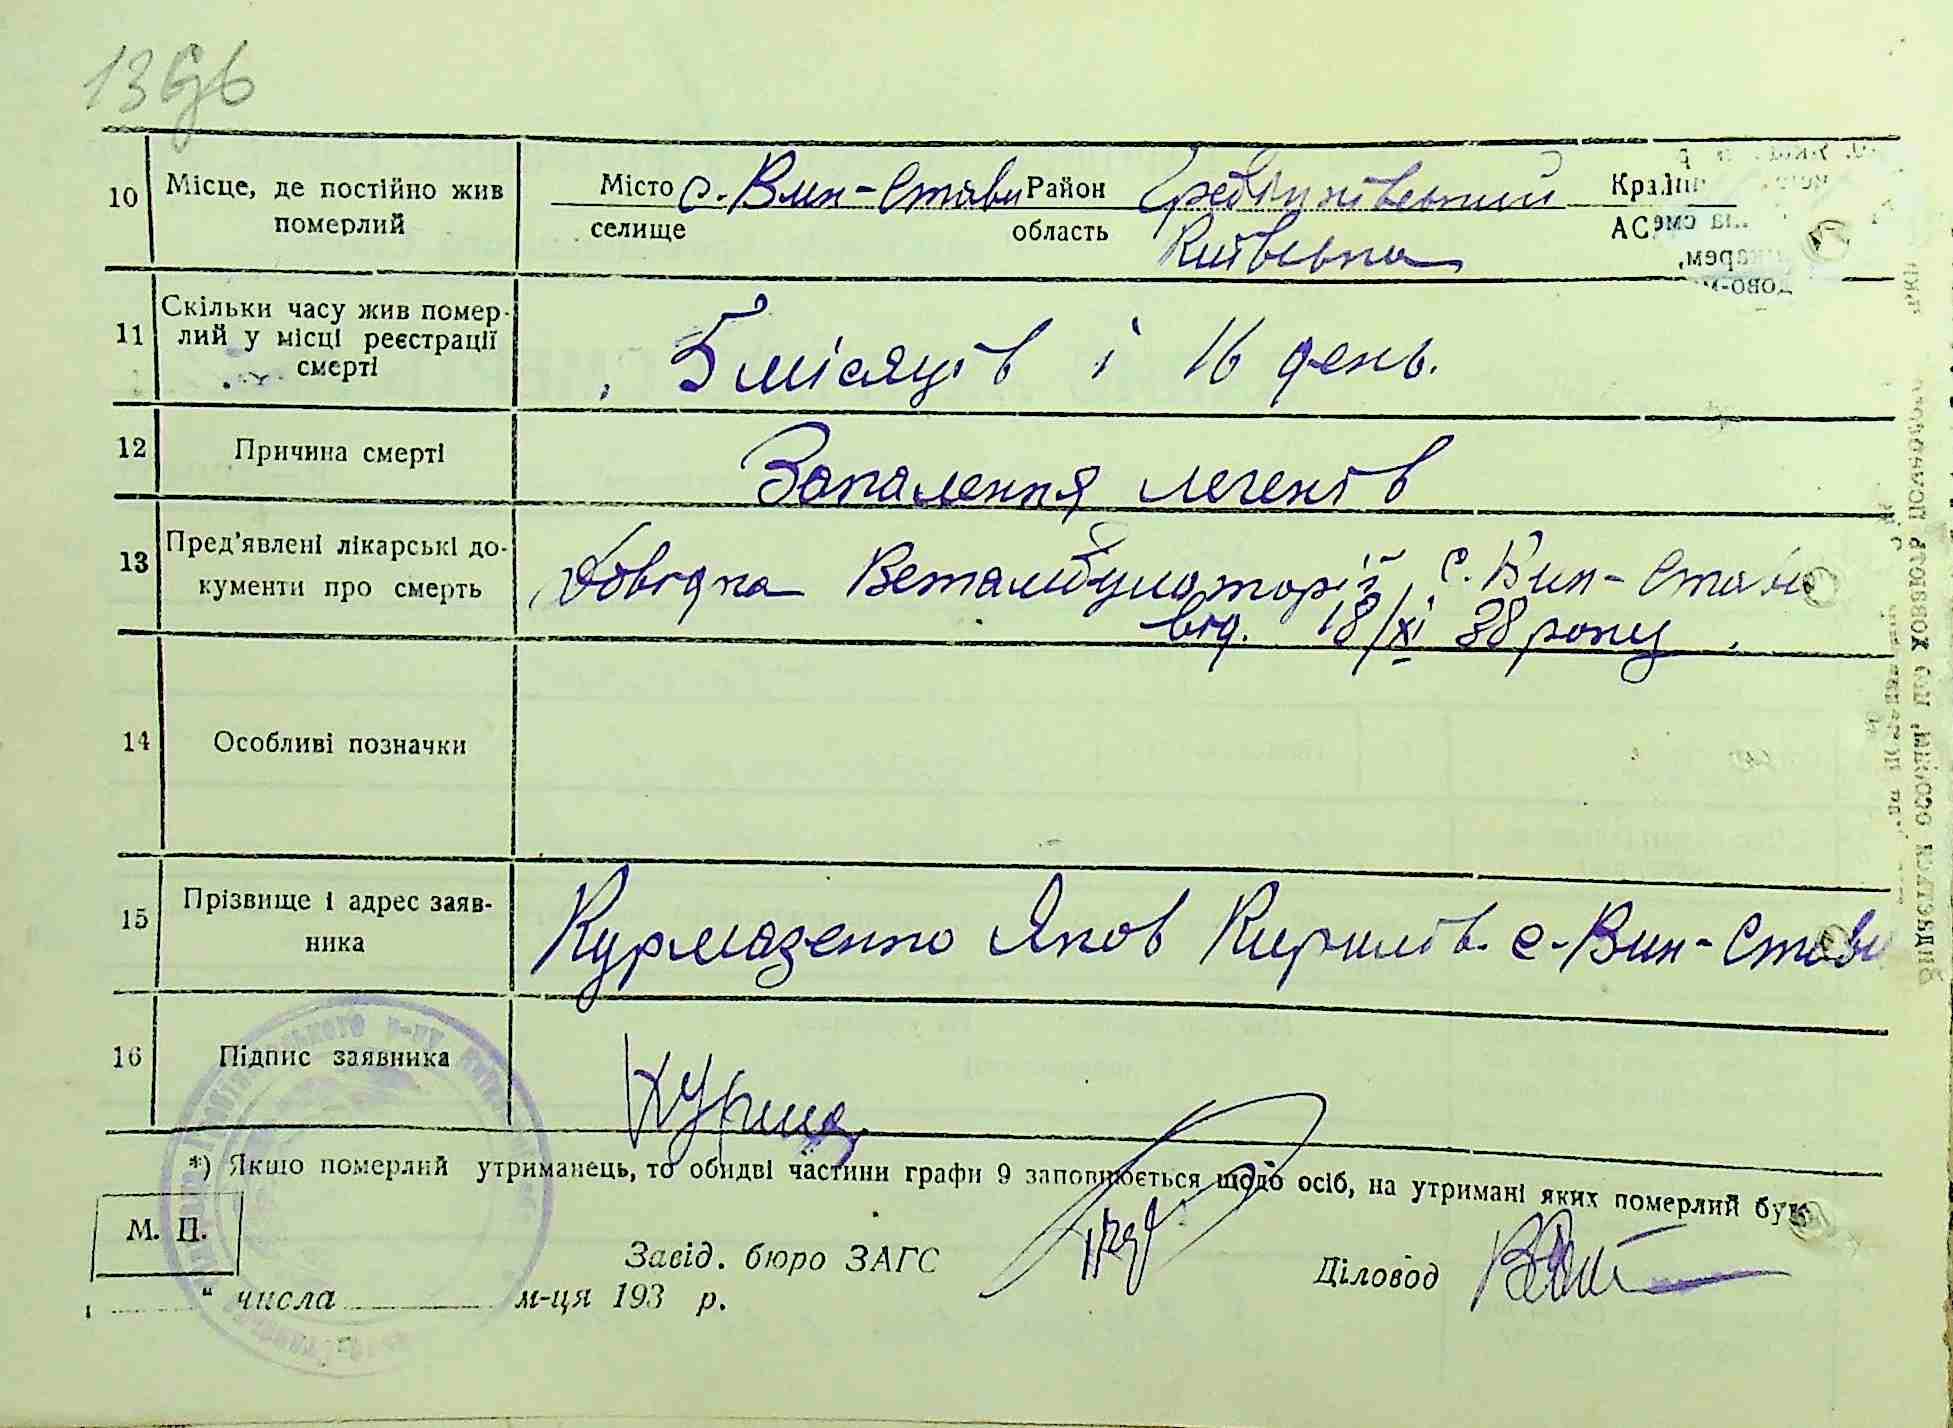 10 Місце, де постійно жив померлий Місто с. Вин-Стави Район Гребінківський Країн
селище область Київська АС
11 Скільки часу жив помер-
лий у місці реєстрації
смерті 5 місяців і 16 день.
12 Причина смерті Запалення легенів
13 Пред'явлені лікарські до-
кументи про смерть Довідка Ветамбулоторії с. Вин-Стави
від. 18/XI 38 року
14 Особливі позначки
15 Прізвище і адрес заяв-
ника Курмазенко Яков Кирилів. с-Вин-Стави
16 Підпис заявника
*) Якшо померлий утриманець, то обидві частини графи 9 заповнюється щодо осіб, на утримані яких померлий був.
М. П.
Завід. бюро ЗАГС Діловод
" числа м-ця 193 р.